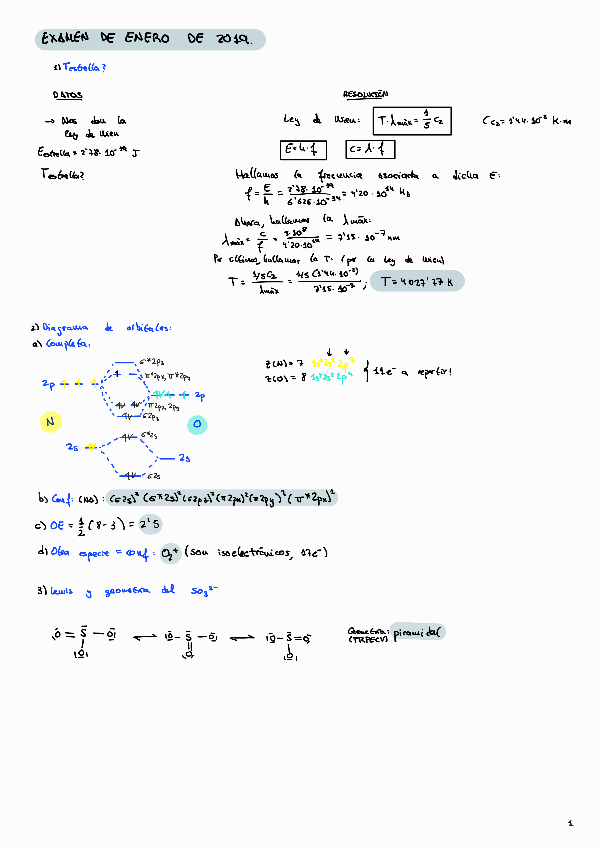 EXAMEN DE ENERO DE 2019.
1) Testrella?
DATOS
→ Nos dan la
ley de Wien
Eestrella = 2'78·10⁻¹⁹ J
Testrella?
RESOLUCIÓN
Ley de Wien: T·λmáx = 1/5 C₂ (C₂ = 1'44·10⁻² K·m
E = h·f c = λ·f
Hallamos la frecuencia asociada a dicha E:
f = E/h = 2'78·10⁻¹⁹/6'626·10⁻³⁴ = 4'20·10¹⁴ Hz
Ahora, hallamos la λmáx:
λmáx = c/f = 3·10⁸/4'20·10¹⁴ = 7'15·10⁻⁷ nm
Por último, hallamos la T. (por la Ley de Wien)
T = 1/5 C₂/λmáx = 1/5 (1'44·10⁻²)/7'15·10⁻⁷; T = 4027'77 K
2) Diagrama de orbitales:
a) Completa:
σ*2pz
π*2px, π*2py
2p
2p
π2px, 2py
σ2pz
N
O
σ*2s
2s
2s
σ2s
Z(N) = 7 1s²2s²2p³
Z(O) = 8 1s²2s²2p⁴
11e⁻ a repartir!
b) Conf. (NO): (σ2s)² (σ*2s)² (σ2pz)² (π2px)² (π2py)² (π*2px)¹
c) OE = 1/2 (8-3) = 2'5
d) Otra especie = conf: O₂⁺ (son isoelectrónicos, 17e⁻)
3) Lewis y geometría del SO₃²⁻
O = S — O ⇌ O — S — O ⇌ O — S = O
O O O
Geometría: piramidal
(TRPECV)
1